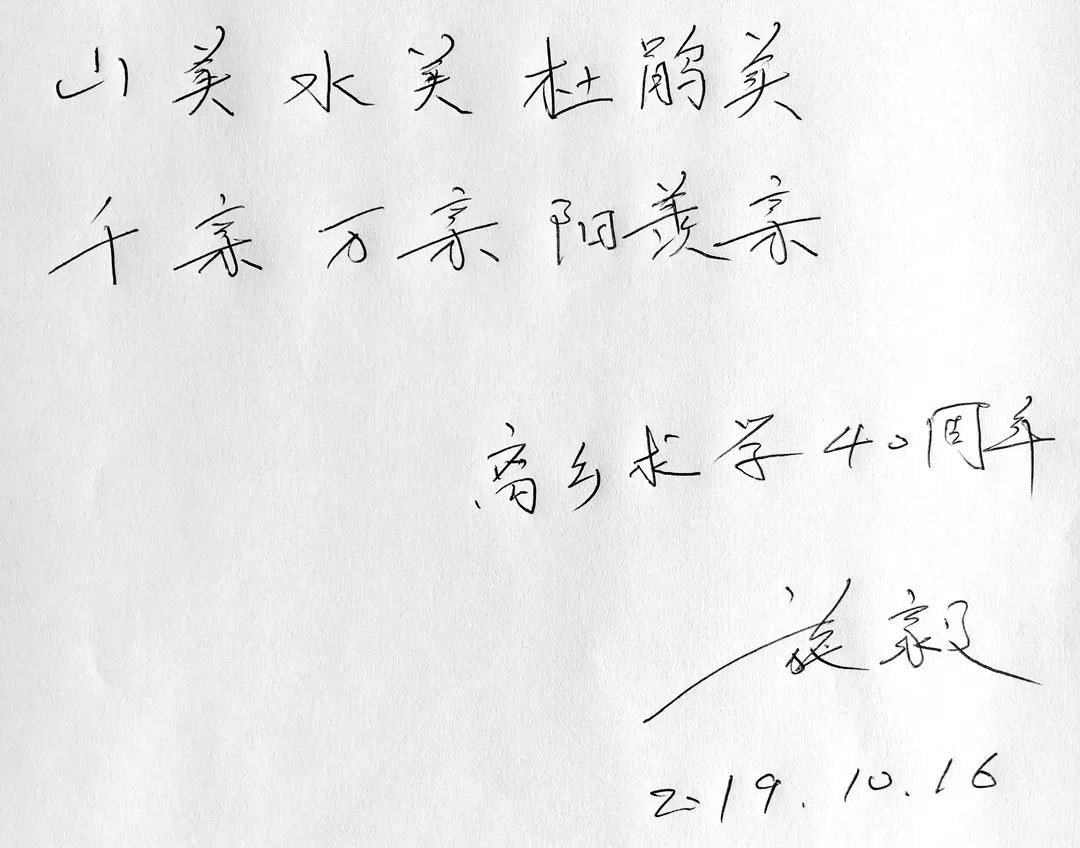 山美水美杜鹃美
千亲万亲阳羡亲
离乡求学40周年
施毅
2019.10.16